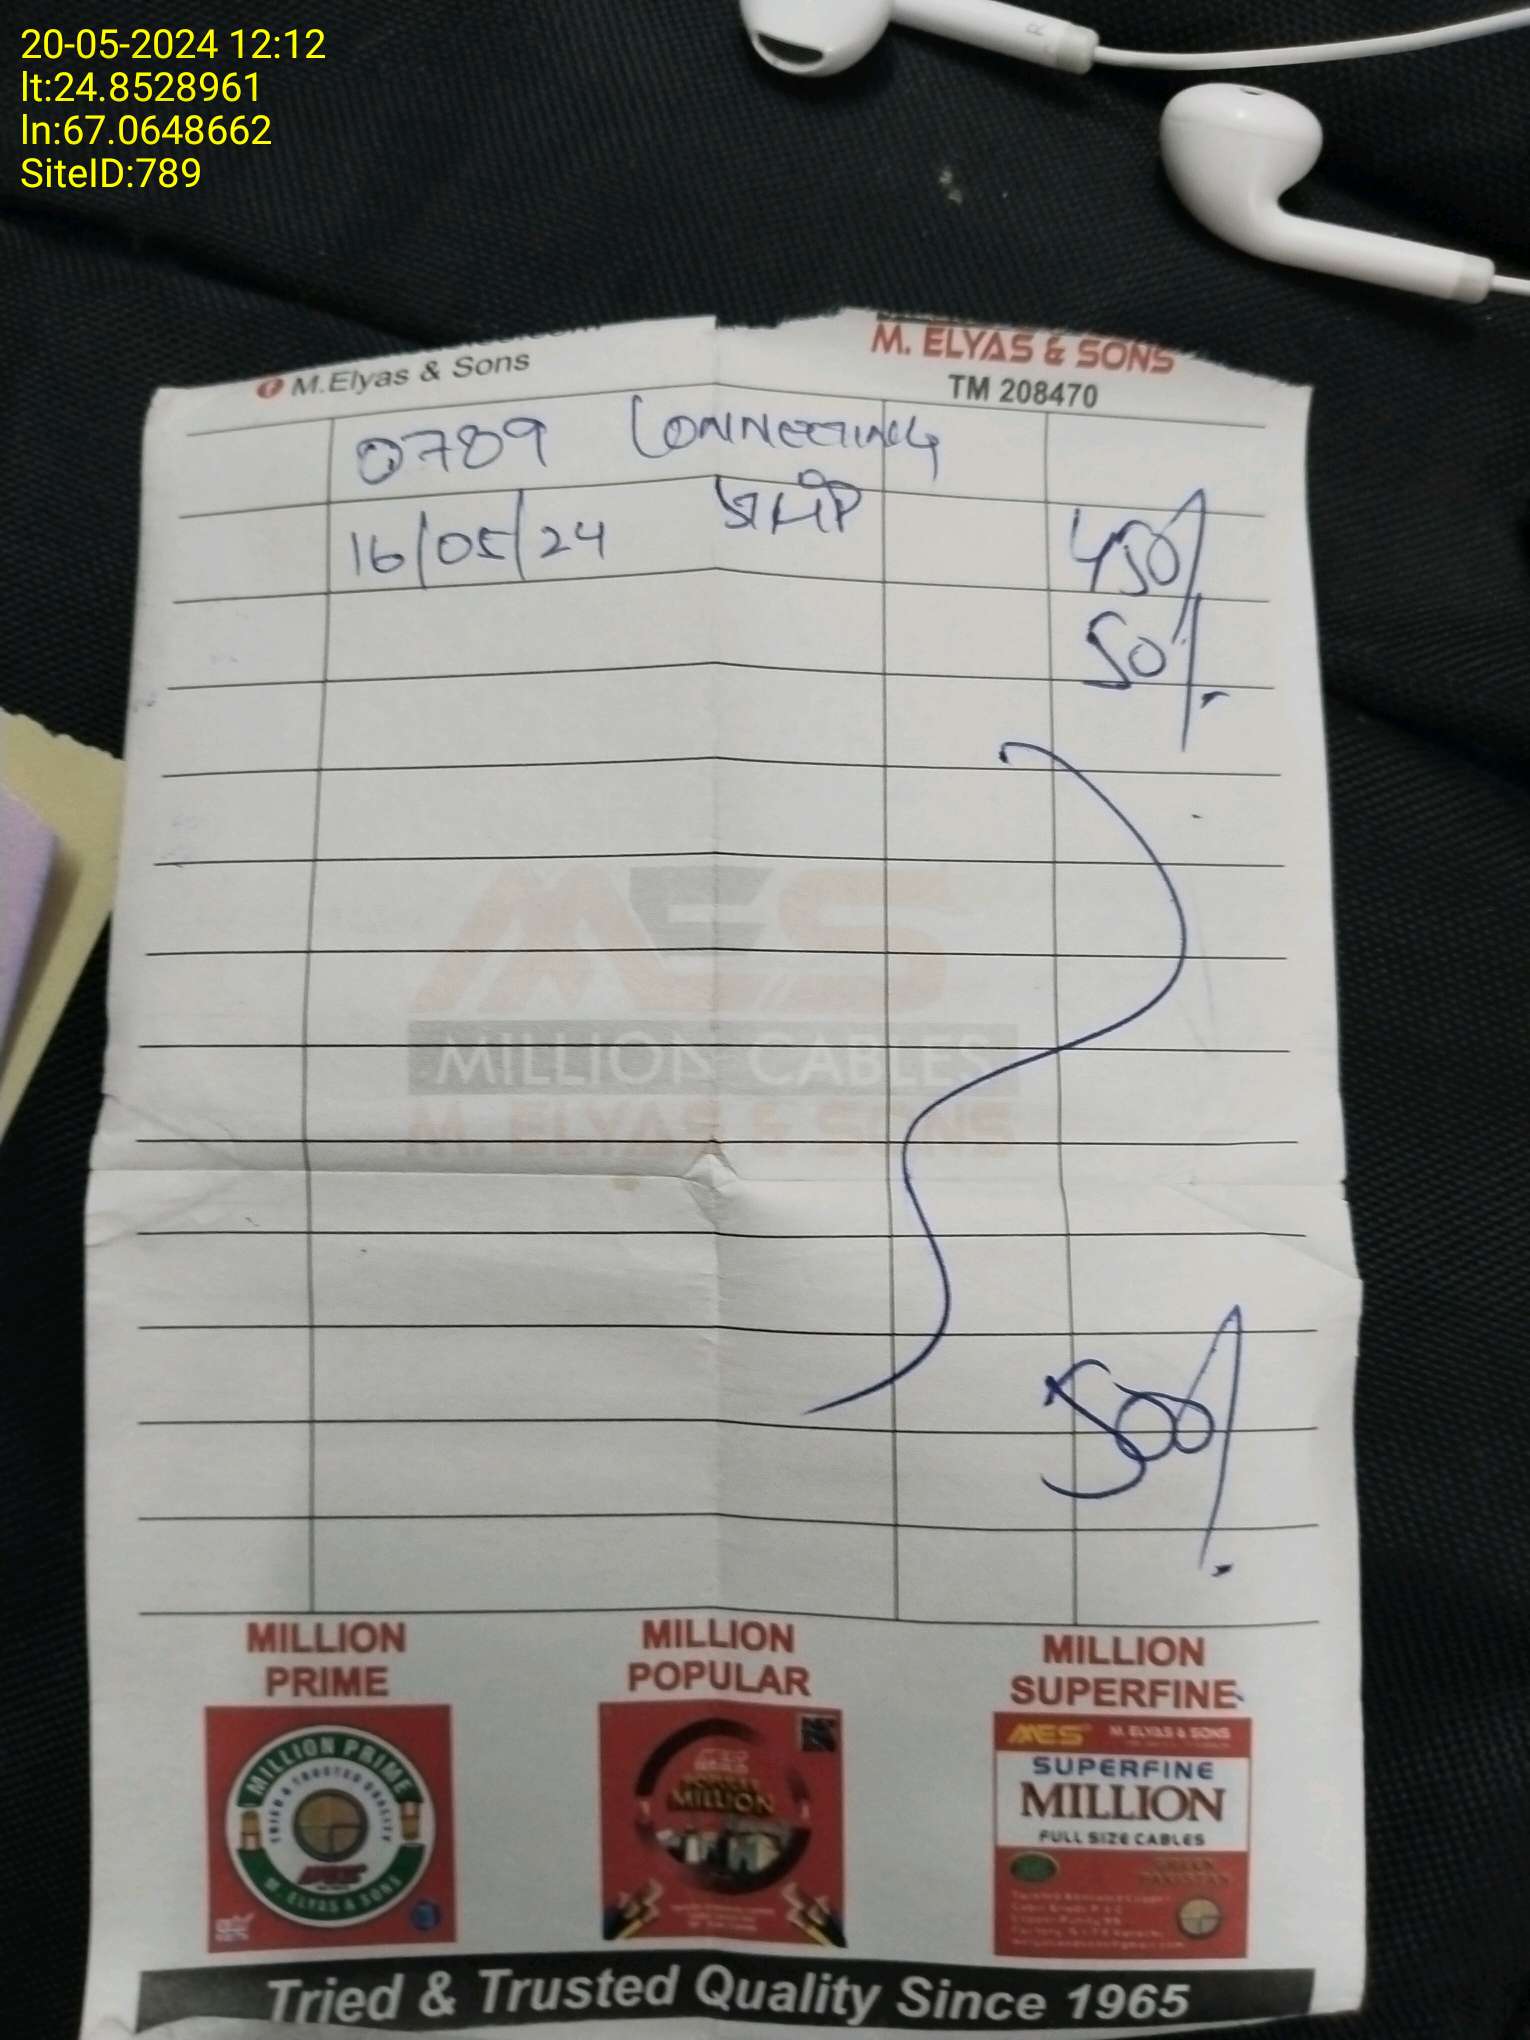 20-05-2024 12:12
lt:24.8528961
ln:67.0648662
SiteID:789
M.Elyas & Sons
M. ELYAS & SONS
TM 208470
0789 CONNECTING
16/05/24
450/
50/-
MES
MILLION CABLES
M. ELYAS & SONS
500/-
MILLION
PRIME
MILLION
POPULAR
MILLION
SUPERFINE
MILLION PRIME
TRIED & TRUSTED QUALITY
M. ELYAS & SONS
MILLION
MES M. ELYAS & SONS
SUPERFINE
MILLION
FULL SIZE CABLES
Tried & Trusted Quality Since 1965